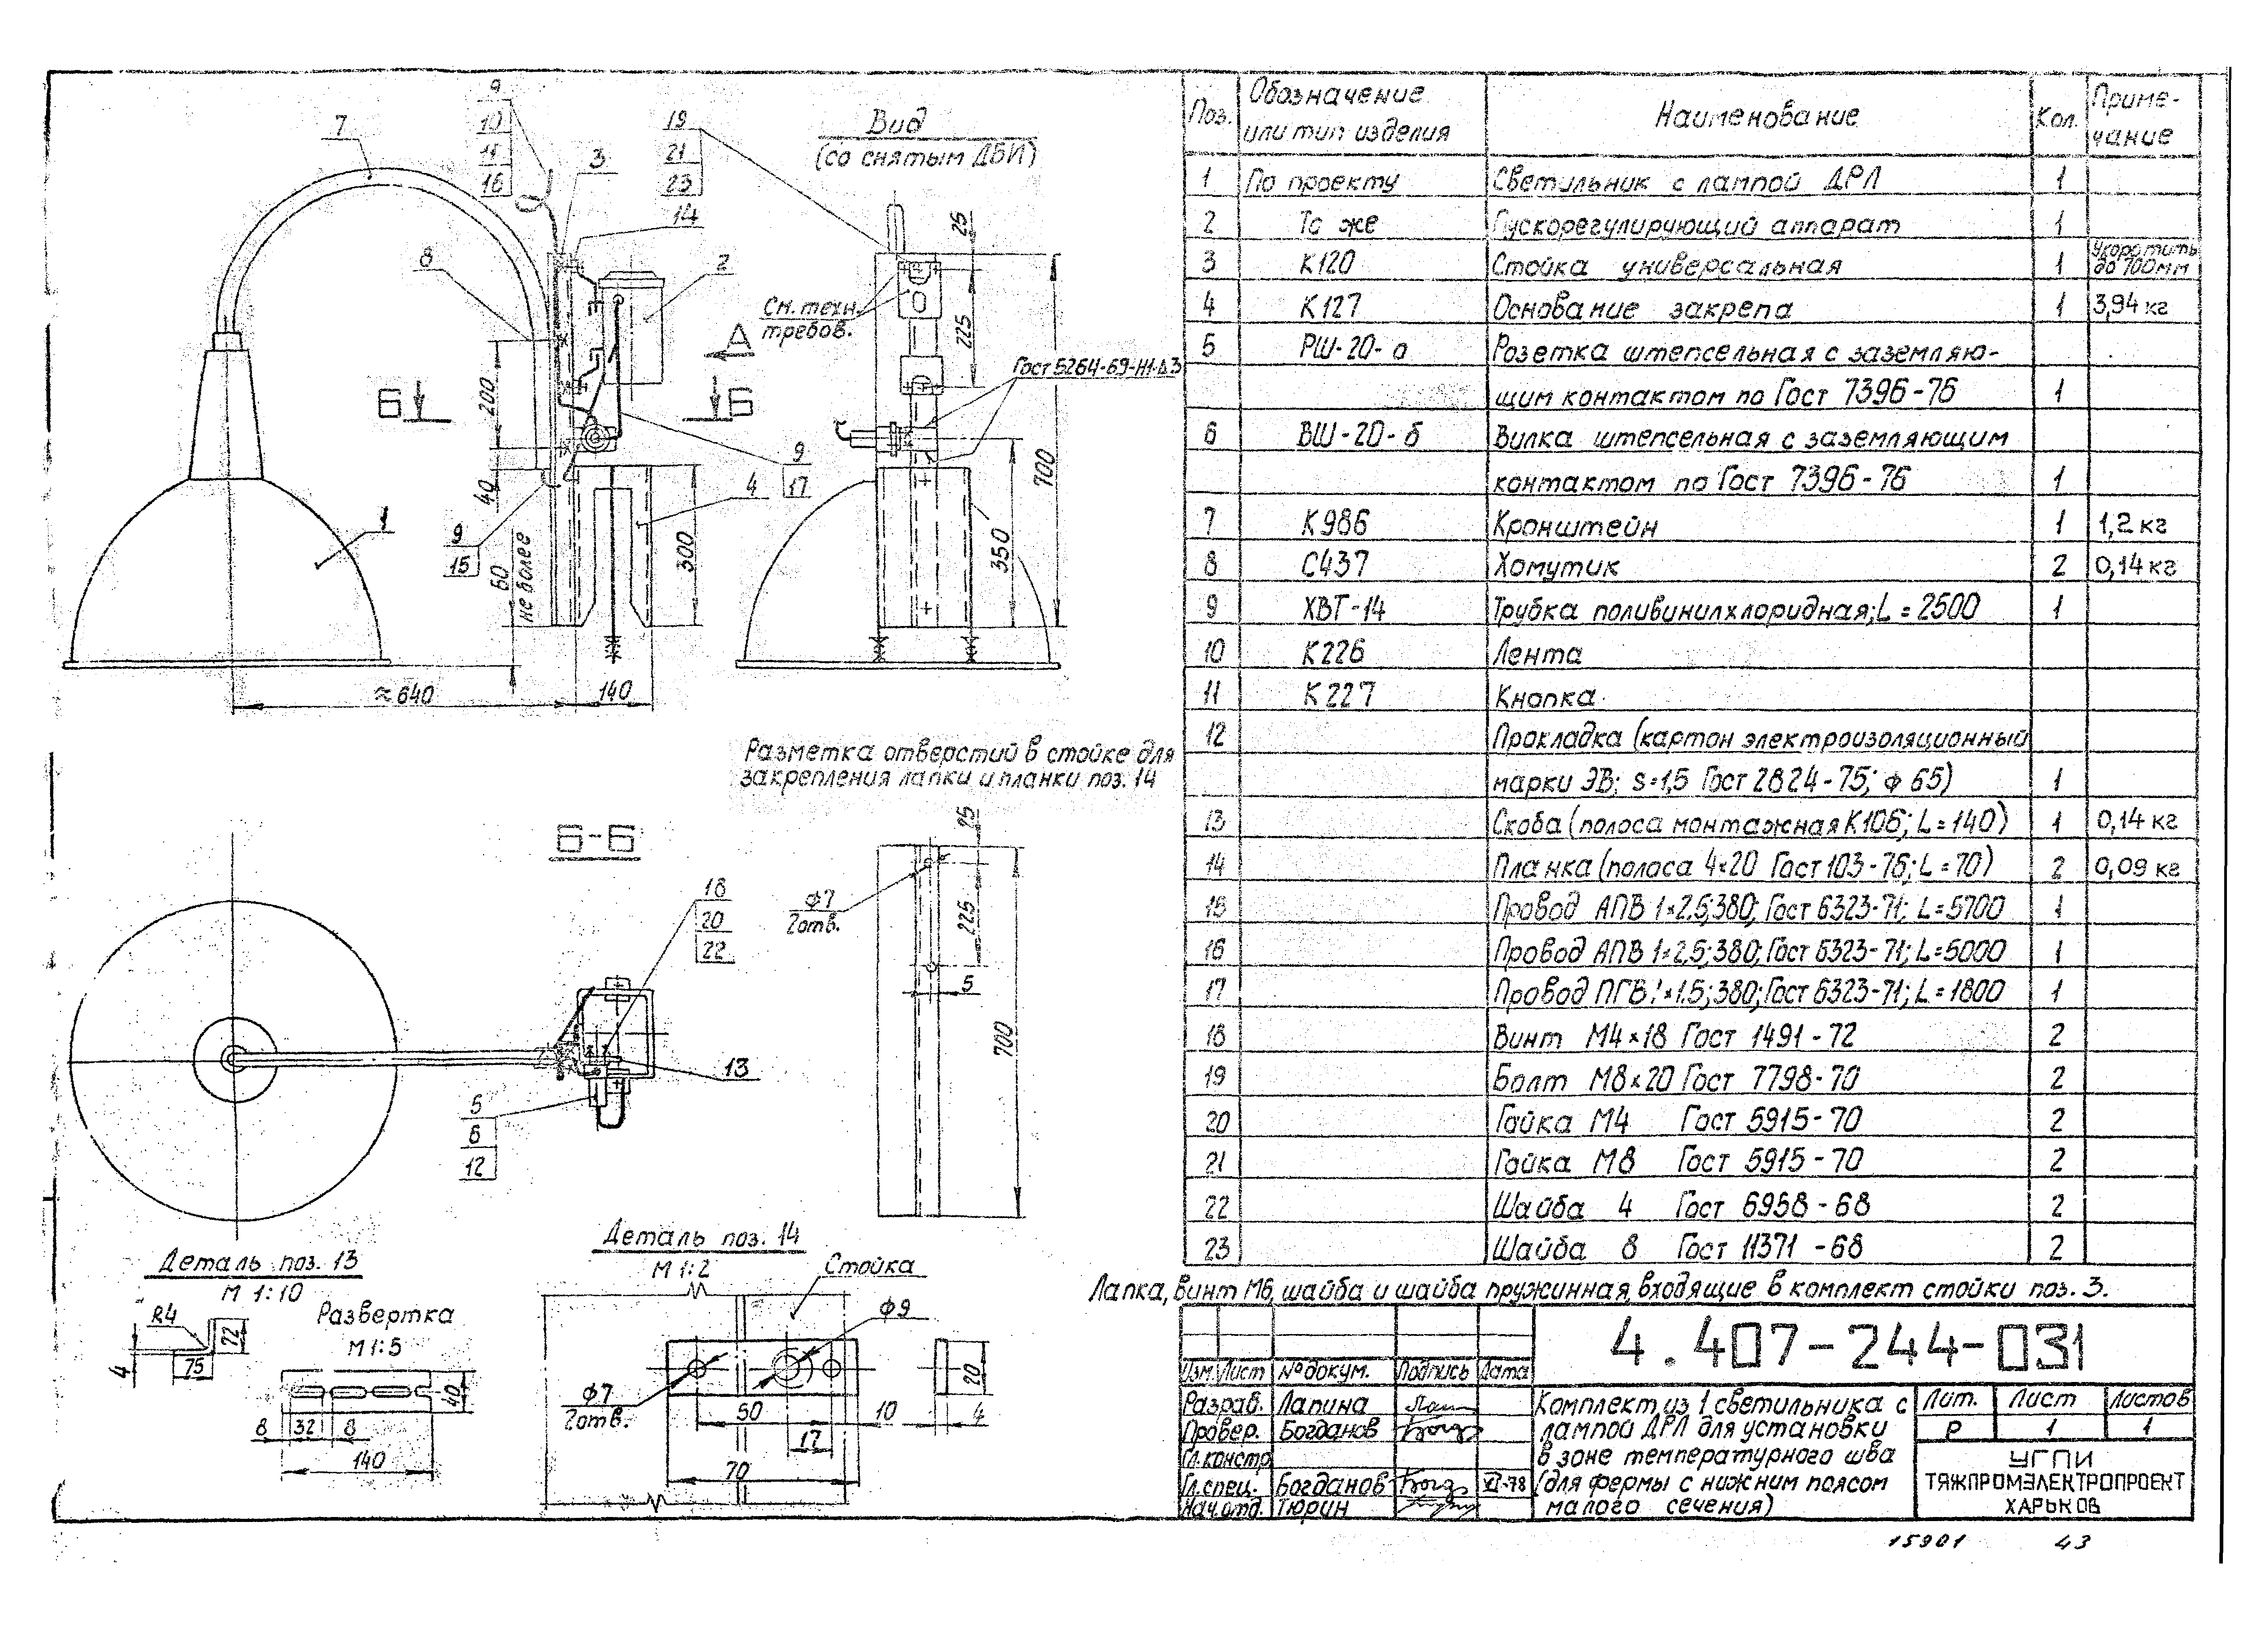 9
10
11
16
7
3
19
21
23
14
8
2
Вид
(со снятым ДБИ)
См. техн.
требов.
А
Гост 5264-69-Н1-Δ3
Б
Б
200
40
60
не более
9
15
9
17
4
1
300
≈640
140
25
225
700
350
Разметка отверстий в стойке для
закрепления лапки и планки поз. 14
Б-Б
18
20
22
13
5
6
12
25
φ7
2отв.
225
5
700
Деталь поз. 13
М 1:10
R4
22
75
4
Развертка
М 1:5
40
8
32
8
140
Деталь поз. 14
М 1:2
Стойка
φ9
φ7
2отв.
50
10
17
70
20
4
Поз. Обозначение или тип изделия Наименование Кол. Приме-чание
1 По проекту Светильник с лампой ДРЛ 1
2 То же Пускорегулирующий аппарат 1
3 К120 Стойка универсальная 1 Укоротить до 700мм
4 К127 Основание закрепа 1 3,94 кг
5 РШ-20-а Розетка штепсельная с заземляю-
щим контактом по Гост 7396-76 1
6 ВШ-20-б Вилка штепсельная с заземляющим
контактом по Гост 7396-76 1
7 К986 Кронштейн 1 1,2 кг
8 С437 Хомутик 2 0,14 кг
9 ХВТ-14 Трубка поливинилхлоридная; L = 2500 1
10 К226 Лента
11 К227 Кнопка
12 Прокладка (картон электроизоляционный
марки ЭВ; s=1,5 Гост 2824-75; φ 65) 1
13 Скоба (полоса монтажная К106; L = 140) 1 0,14 кг
14 Планка (полоса 4×20 Гост 103-76; L = 70) 2 0,09 кг
15 Провод АПВ 1×2,5; 380; Гост 6323-71; L=5700 1
16 Провод АПВ 1×2,5; 380; Гост 6323-71; L=5000 1
17 Провод ПГВ 1×1.5; 380; Гост 6323-71; L = 1800 1
18 Винт М4×18 Гост 1491-72 2
19 Болт М8×20 Гост 7798-70 2
20 Гайка М4 Гост 5915-70 2
21 Гайка М8 Гост 5915-70 2
22 Шайба 4 Гост 6958-68 2
23 Шайба 8 Гост 11371-68 2
Лапка, винт М6, шайба и шайба пружинная, входящие в комплект стойки поз. 3.
4.407-244-031
Изм. Лист № докум. Подпись Дата
Разраб. Лапина
Провер. Богданов
Гл.констр
Гл.спец. Богданов VI-78
Нач.отд. Тюрин
Комплект из 1 светильника с
лампой ДРЛ для установки
в зоне температурного шва
(для фермы с нижним поясом
малого сечения)
Лит. Лист Листов
Р 1 1
УГПИ
ТЯЖПРОМЭЛЕКТРОПРОЕКТ
ХАРЬКОВ
15901 43